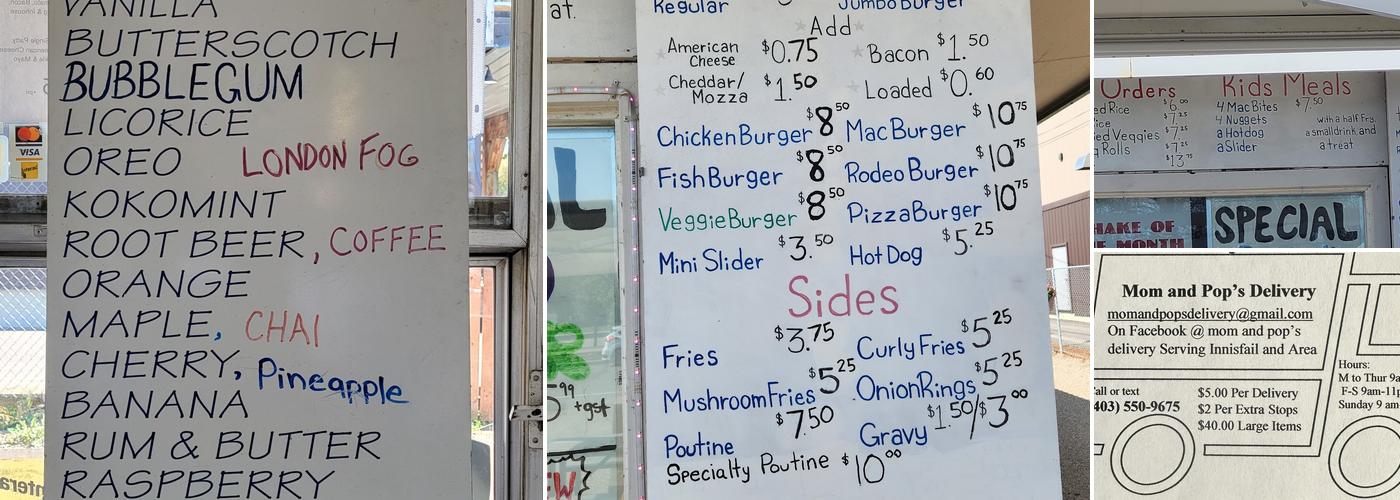 VANILLA
BUTTERSCOTCH
BUBBLEGUM
LICORICE
OREO LONDON FOG
KOKOMINT
ROOT BEER, COFFEE
ORANGE
MAPLE, CHAI
CHERRY, Pineapple
BANANA
RUM & BUTTER
RASPBERRY
VISA
at.
Regular Jumbo Burger
Add
American Cheese $0.75 Bacon $1.50
Cheddar/ Mozza $1.50 Loaded $0.60
Chicken Burger $8.50 Mac Burger $10.75
Fish Burger $8.50 Rodeo Burger $10.75
Veggie Burger $8.50 Pizza Burger $10.75
Mini Slider $3.50 Hot Dog $5.25
Sides
Fries $3.75 Curly Fries $5.25
Mushroom Fries $5.25 Onion Rings $5.25
Poutine $7.50 Gravy $1.50/$3.00
Specialty Poutine $10.00
.99 +gst
Orders
ed Rice $6.00
ice $7.25
ed Veggies $7.25
Rolls $7.25
$13.75
Kids Meals
4 Mac Bites $7.50
4 Nuggets with a half Frs.
a Hotdog a small drink and
a Slider a treat
HAKE OF
MONTH
SPECIAL
Mom and Pop's Delivery
momandpopsdelivery@gmail.com
On Facebook @ mom and pop's
delivery Serving Innisfail and Area
all or text
403) 550-9675
$5.00 Per Delivery
$2 Per Extra Stops
$40.00 Large Items
Hours:
M to Thur 9a
F-S 9am-11p
Sunday 9 am-